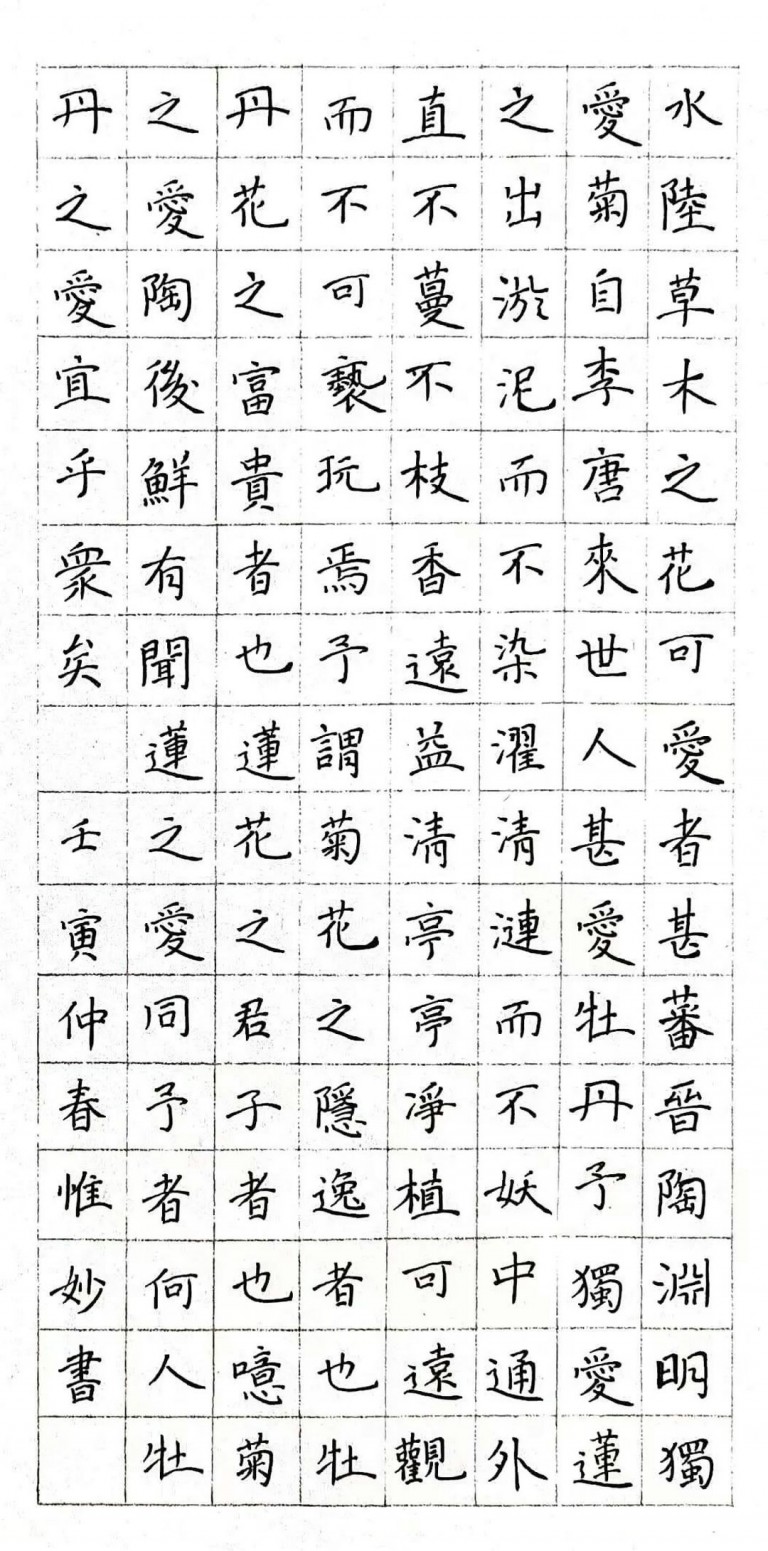 水陸草木之花可愛者甚蕃晉陶淵明獨
愛菊自李唐來世人甚愛牡丹予獨愛蓮
之出淤泥而不染濯清漣而不妖中通外
直不蔓不枝香遠益清亭亭凈植可遠觀
而不可褻玩焉予謂菊花之隱逸者也牡
丹花之富貴者也蓮花之君子者也噫菊
之愛陶後鮮有聞蓮之愛同予者何人牡
丹之愛宜乎衆矣 壬寅仲春惟妙書